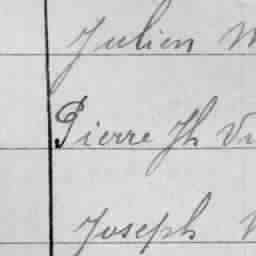 Julien
Pierre Jh
Joseph